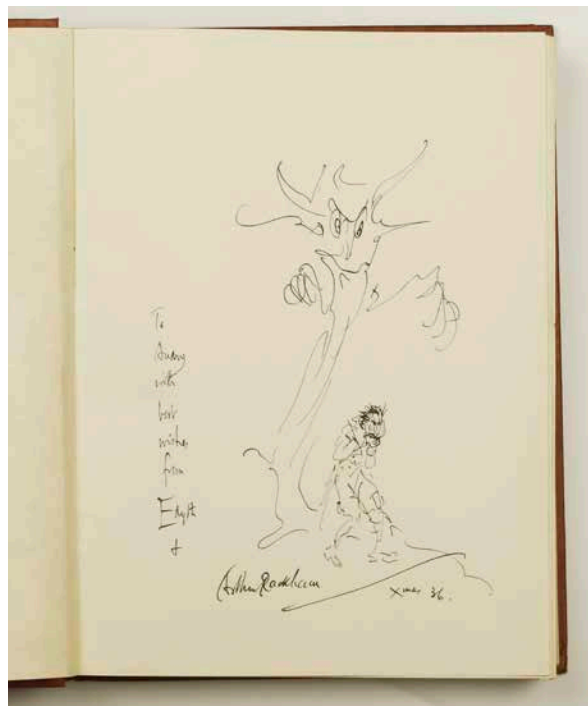 To
with
best
wishes
from
Edyth
+
Arthur Rackham
Xmas 36.